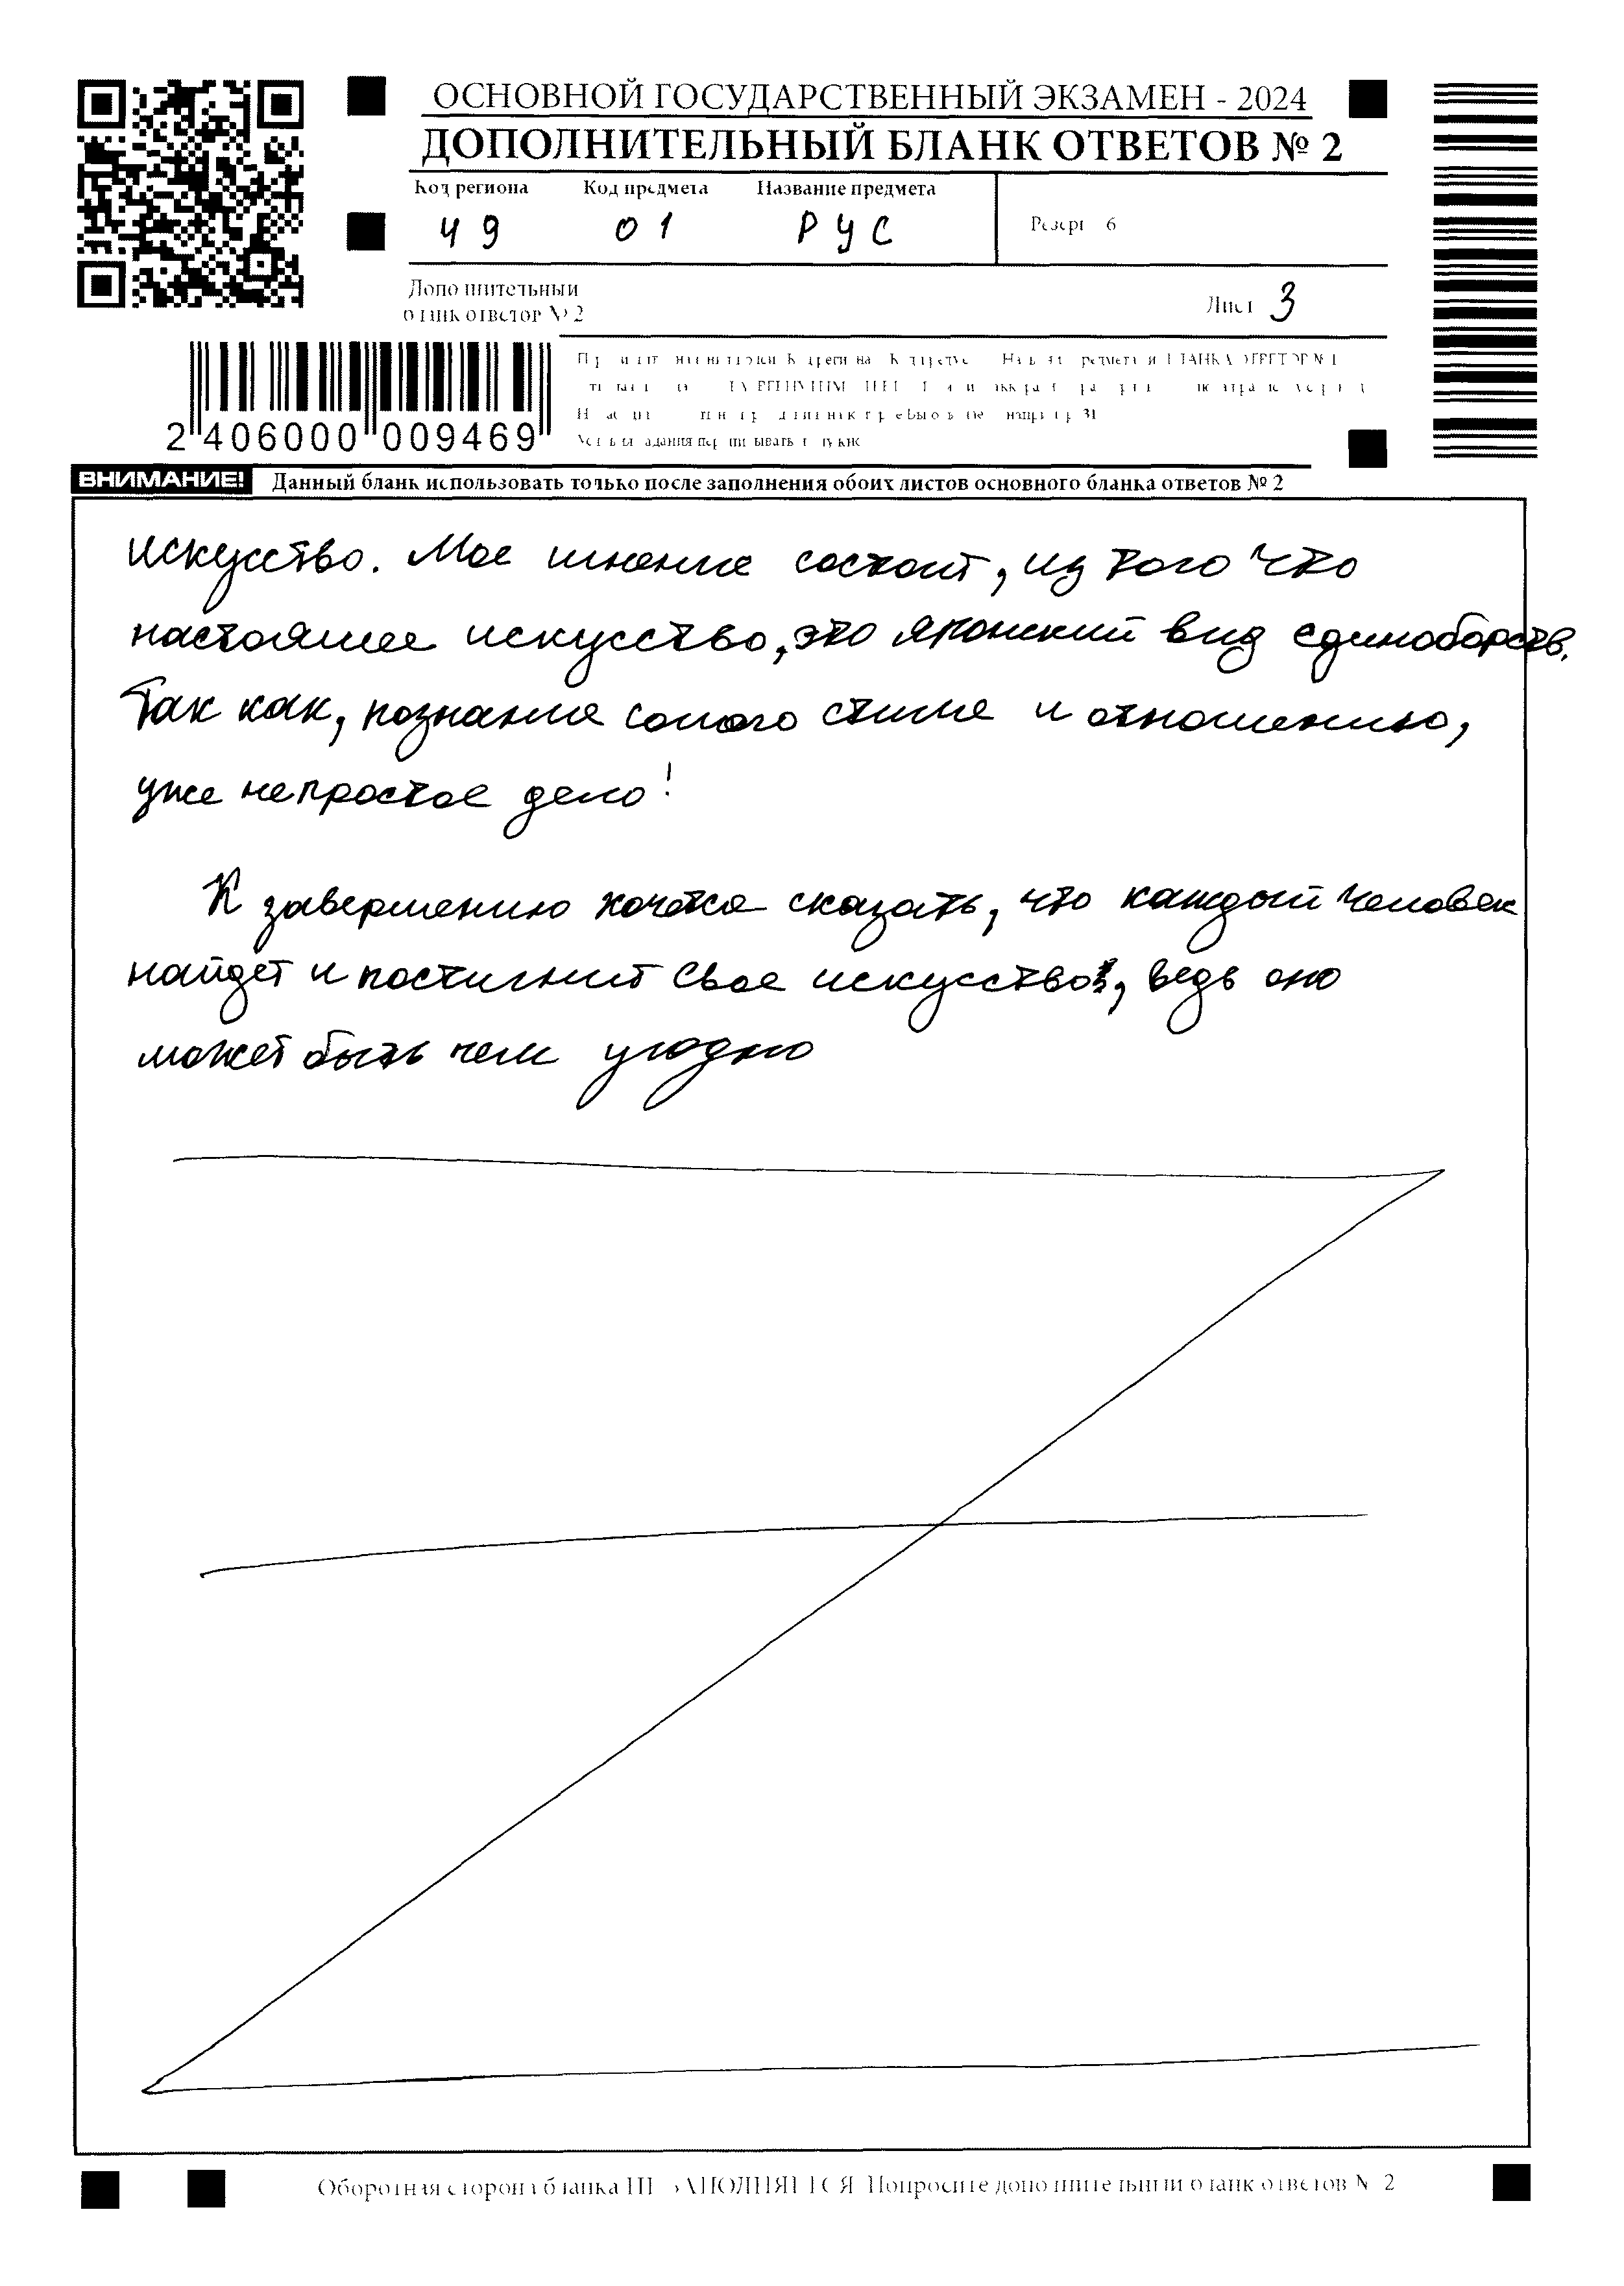 ОСНОВНОЙ ГОСУДАРСТВЕННЫЙ ЭКЗАМЕН - 2024
ДОПОЛНИТЕЛЬНЫЙ БЛАНК ОТВЕТОВ № 2
Код региона Код предмета Название предмета
49 01 РУС
Резерв 6
Дополнительный
бланк ответов № 2
Лист 3
2 406000 009469
ВНИМАНИЕ! Данный бланк использовать только после заполнения обоих листов основного бланка ответов № 2
искусство. Мое мнение состоит, из того что
настоящее искусство, это японский вид единоборств.
Так как, познание самого стиля и отношению,
уже непростое дело!
К завершению хочется сказать, что каждый человек
найдет и постигнит свое искусство, ведь оно
может быть чем угодно
Оборотная сторона бланка НЕ ЗАПОЛНЯЕТСЯ Попросите дополнительный бланк ответов № 2